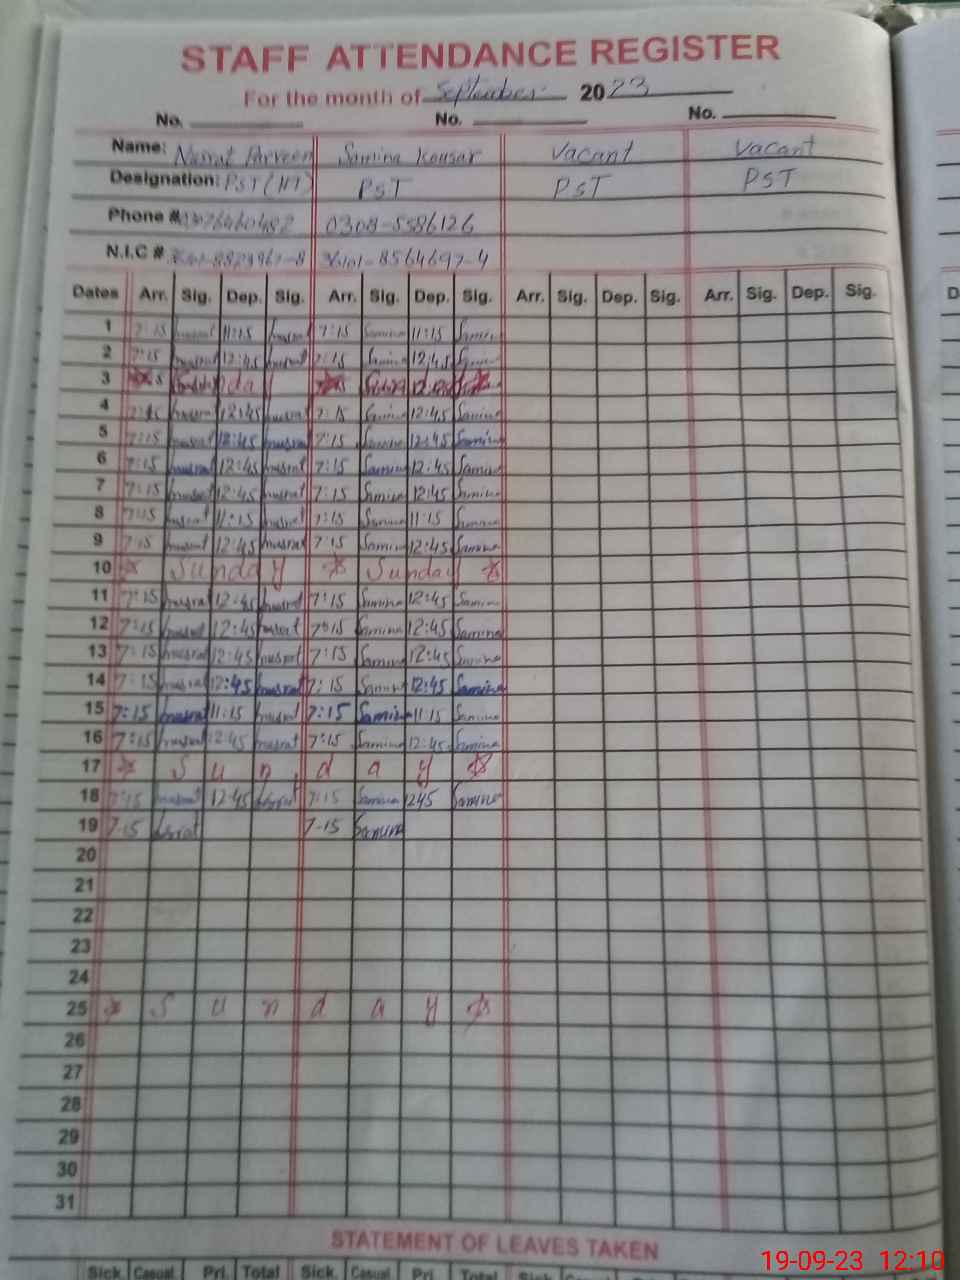 STAFF ATTENDANCE REGISTER
For the month of September 2023
No. No. No.
Name: Nusrat Parveen Samina Kousar Vacant Vacant
Designation: PST (HT) PST PST PST
Phone # 0308-5586126
N.I.C # 36101-8564697-4
Dates Arr. Sig. Dep. Sig. Arr. Sig. Dep. Sig. Arr. Sig. Dep. Sig. Arr. Sig. Dep. Sig.
1 7:15 nusrat 11:15 nusrat 7:15 Samina 11:15 Samina
2 7:15 nusrat 12:45 nusrat 7:15 Samina 12:45 Samina
3
4 7:15 nusrat 12:45 nusrat 7:15 Samina 12:45 Samina
5 7:15 nusrat 12:45 nusrat 7:15 Samina 12:45 Samina
6 7:15 nusrat 12:45 nusrat 7:15 Samina 12:45 Samina
7 7:15 nusrat 12:45 nusrat 7:15 Samina 12:45 Samina
8 7:15 nusrat 11:15 nusrat 7:15 Samina 11:15 Samina
9 7:15 nusrat 12:45 nusrat 7:15 Samina 12:45 Samina
10 Sunday Sunday
11 7:15 nusrat 12:45 nusrat 7:15 Samina 12:45 Samina
12 7:15 nusrat 12:45 nusrat 7:15 Samina 12:45 Samina
13 7:15 nusrat 12:45 nusrat 7:15 Samina 12:45 Samina
14 7:15 nusrat 12:45 nusrat 7:15 Samina 12:45 Samina
15 7:15 nusrat 11:15 nusrat 7:15 Samina 11:15 Samina
16 7:15 nusrat 12:45 nusrat 7:15 Samina 12:45 Samina
17 Sunday
18 nusrat 12:45 nusrat 7:15 Samina 1245 Samina
19 7-15 nusrat 7-15 Samina
20
21
22
23
24
25 Sunday
26
27
28
29
30
31
STATEMENT OF LEAVES TAKEN
Sick. Casual Pri. Total Sick. Casual Pri. Total Sick. Casual Pri. Total Sick.
19-09-23 12:10